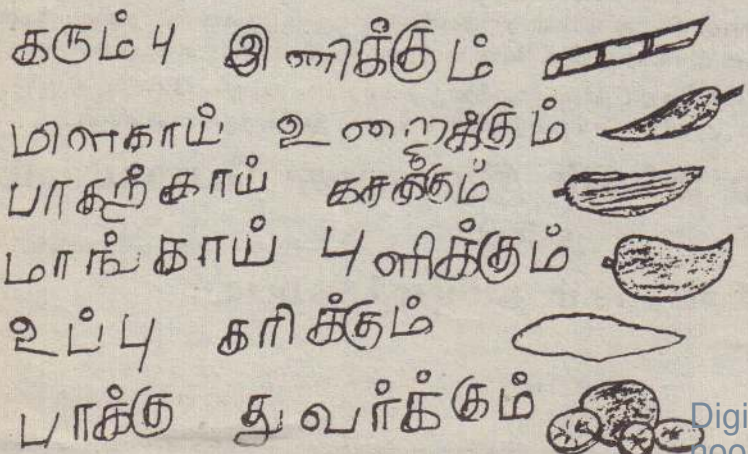 கரும்பு இனிக்கும்
மிளகாய் உறைக்கும்
பாகற்காய் கசக்கும்
மாங்காய் புளிக்கும்
உப்பு கரிக்கும்
பாக்கு துவர்க்கும்
Digi
noo